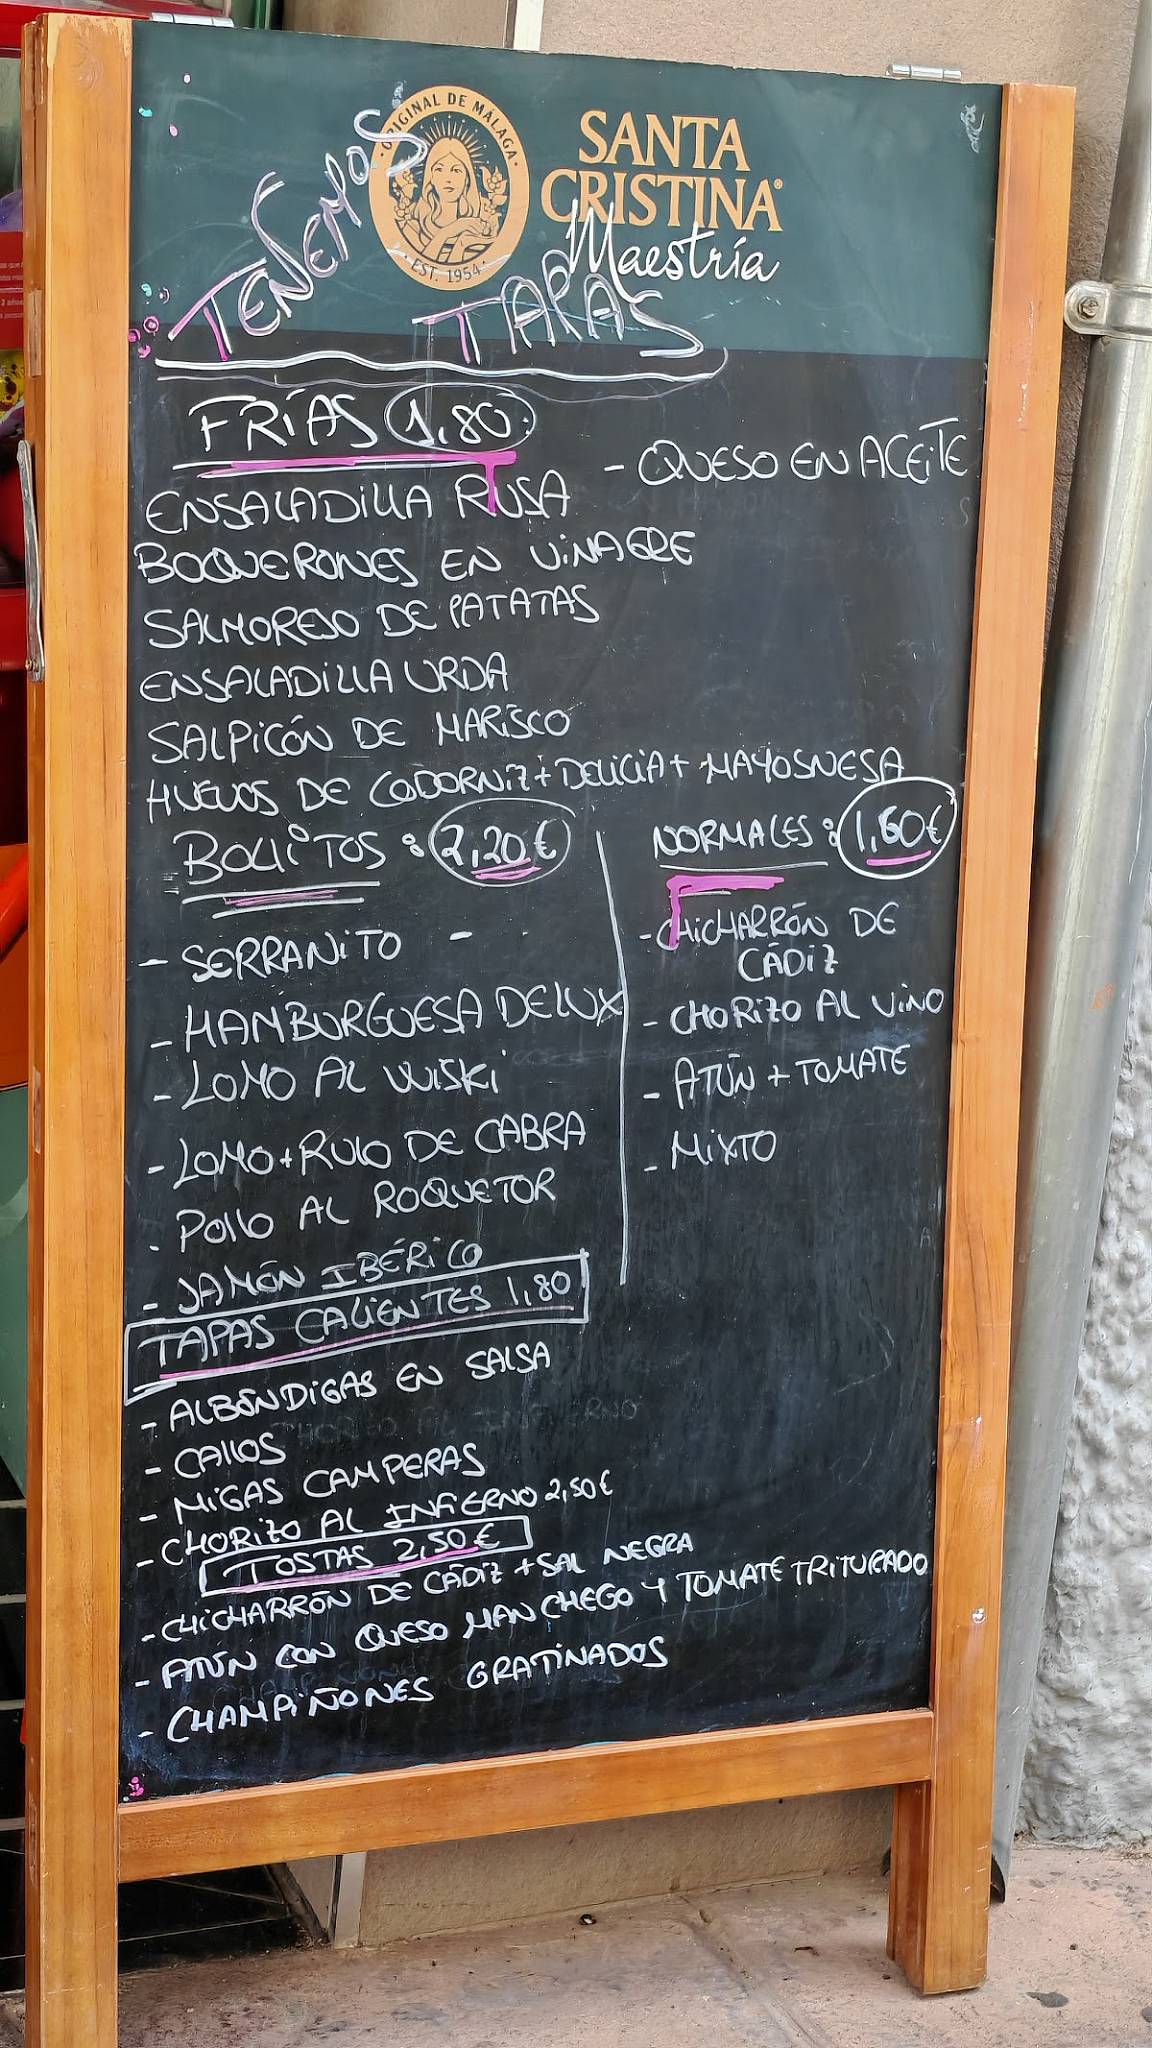 ORIGINAL DE MÁLAGA
EST. 1954
SANTA
CRISTINA
Maestría
TENEMOS
TAPAS
FRÍAS 1,80
- QUESO EN ACEITE
ENSALADILLA RUSA
BOQUERONES EN VINAGRE
SALMOREJO DE PATATAS
ENSALADILLA URDA
SALPICÓN DE MARISCO
HUEVOS DE CODORNIZ + DELICIA + MAYOSNESA
BOLLITOS : 2,20 €
- SERRANITO -
- HAMBURGUESA DELUX
- LOMO AL WISKI
- LOMO + RULO DE CABRA
- POLLO AL ROQUETOR
- JAMÓN IBÉRICO
NORMALES : 1,60€
- CHICHARRÓN DE
CÁDIZ
- CHORIZO AL VINO
- ATÚN + TOMATE
- MIXTO
TAPAS CALIENTES 1,80
- ALBÓNDIGAS EN SALSA
- CALLOS
- MIGAS CAMPERAS
- CHORIZO AL INFIERNO 2,50€
TOSTAS 2,50 €
- CHICHARRÓN DE CÁDIZ + SAL NEGRA
- ATÚN CON QUESO MANCHEGO Y TOMATE TRITURADO
- CHAMPIÑONES GRATINADOS